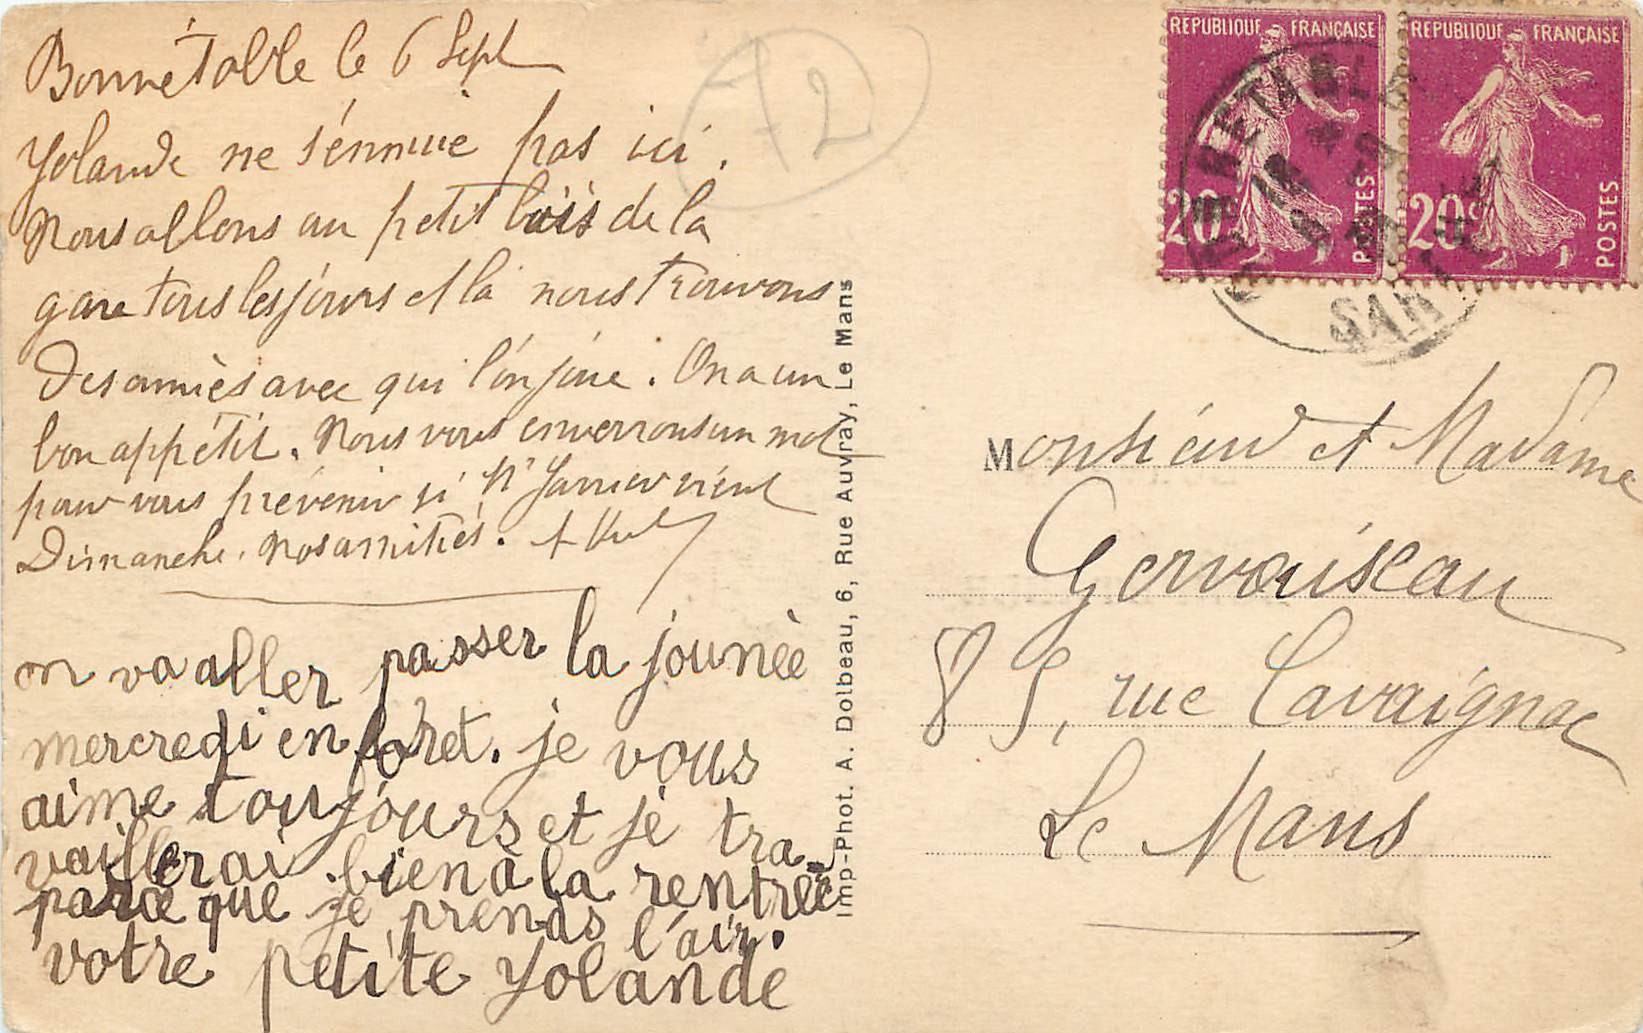 Bonnétable le 6 Sept
Yolande ne s'ennuie pas ici.
Nous allons au petit bois de la
gare tous les jours et là nous trouvons
des amies avec qui l'on joue. On a un
bon appétit. Nous vous enverrons un mot
pour vous prévenir si Mr Janvier vient
Dimanche. Nos amitiés.
on va aller passer la jounèe
mercredi en foret. je vous
aime toujours et je tra-
vaillerai bien a la rentrée
parce que je prends l'air.
votre petite Yolande
72
Imp-Phot. A. Dolbeau, 6, Rue Auvray, Le Mans
REPUBLIQUE FRANÇAISE
20c
POSTES
REPUBLIQUE FRANÇAISE
20c
POSTES
BONNETABLE
SARTHE
Monsieur et Madame
Gervaiseau
85, rue Cavaignac
Le Mans